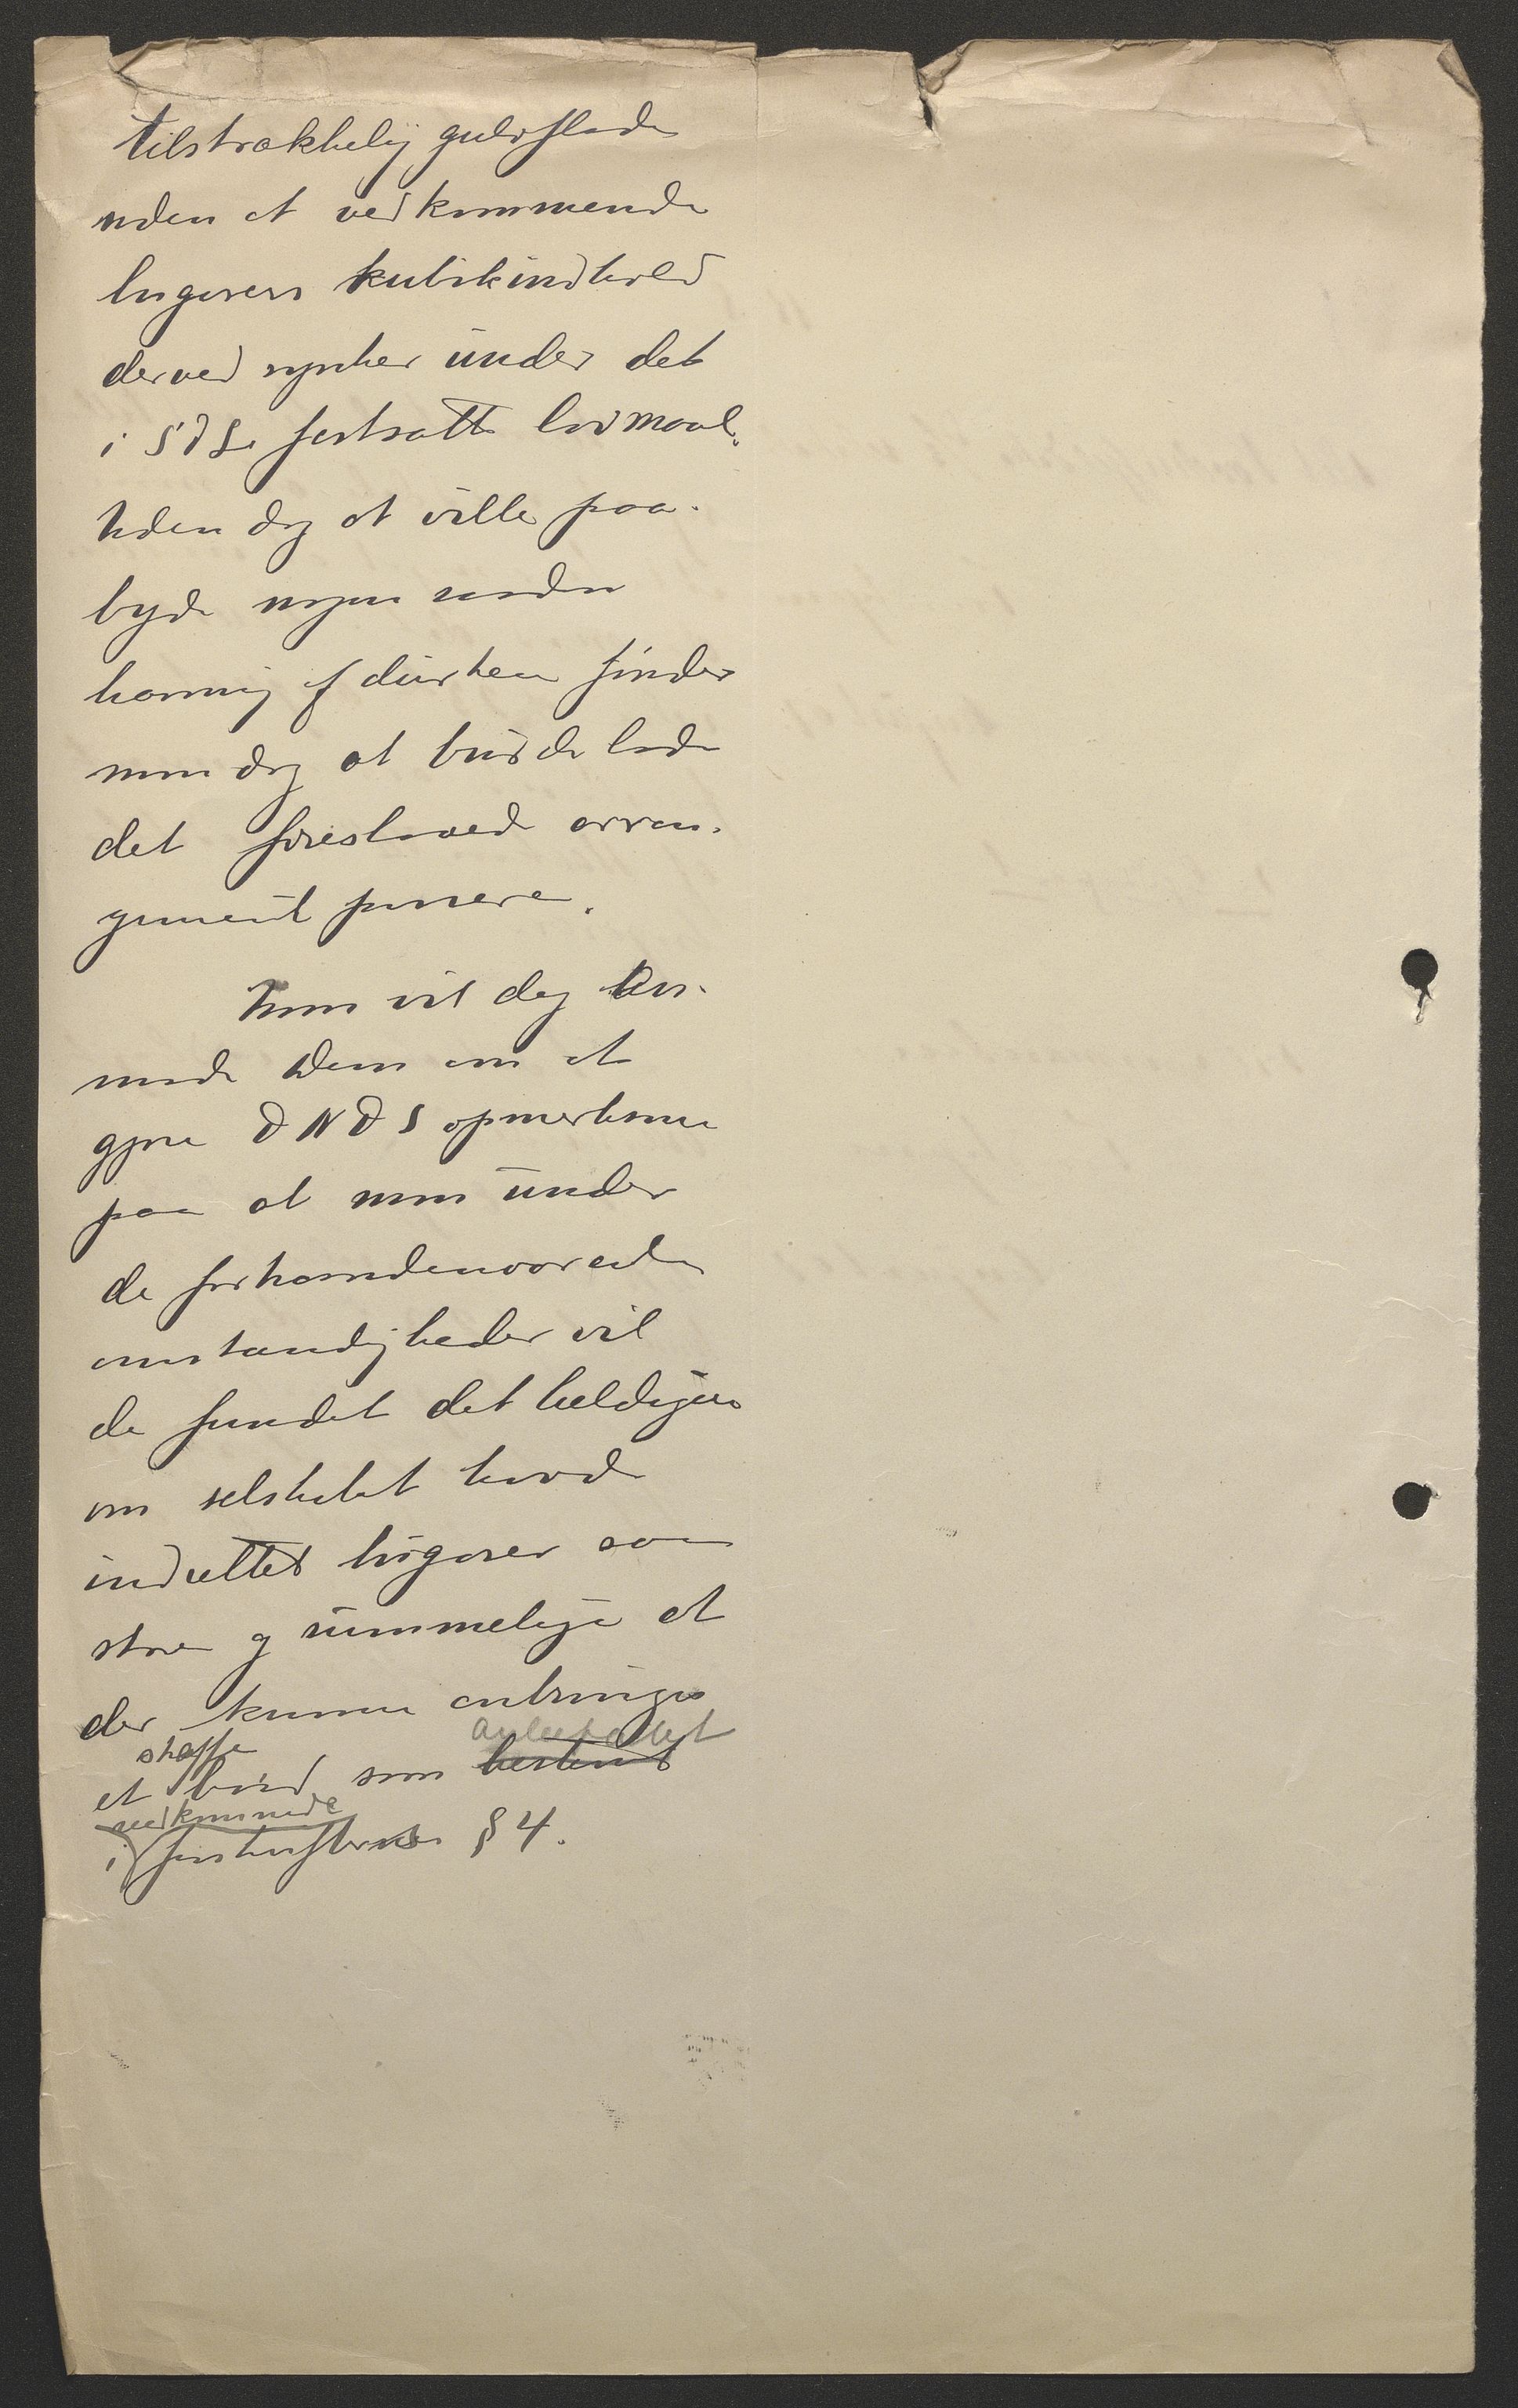 tilstrækkelig gulvflade
uden at vedkommende
lugarers kubikindhold
derved synker under det
i SDL. fastsatte lovmaal.
Uden dog at ville paa-
byde nogen anden
af durken finder
man dog at burde lade
det foreslaaede arran-
gement passere.
Man vil dog an-
mode Dem om at
gjøre DNDS opmerksom
paa at man under
de forhaandenværende
omstændigheder vil
de fundet det heldigere
om selskabet havde
indrettet lugarer saa
store og rummelige at
der kunne anbringes
skaffe anbefalet
et bord som bestemt
vedkommende
i forskrifternes § 4.